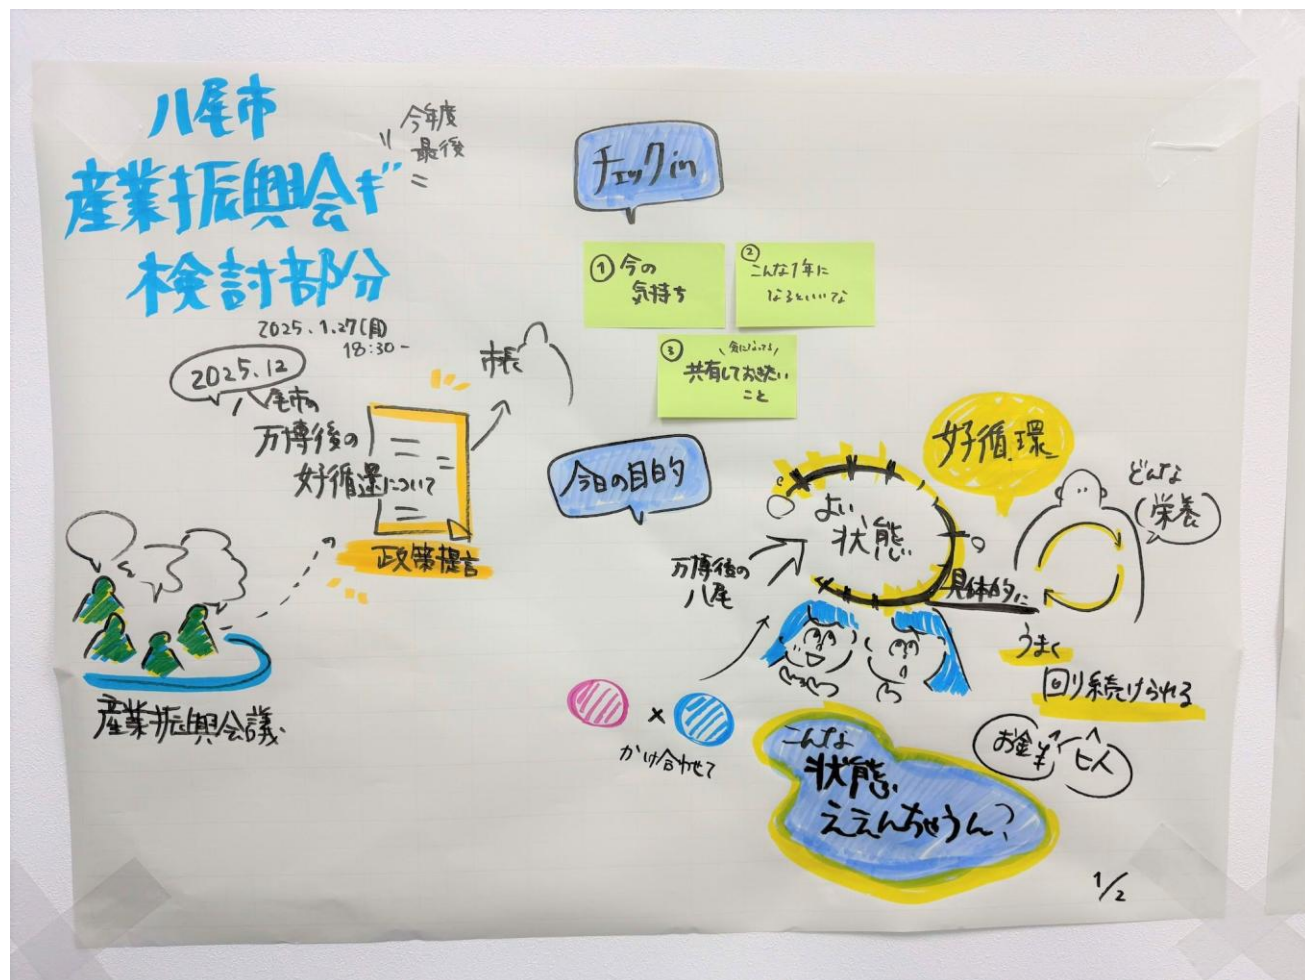 八尾市
産業振興会ギ
検討部分
今年度
最後
2025.1.27(月)
18:30-
2025.12
八尾市の
万博後の
好循還について
政策提言
市長
産業振興会議
チェックin
① 今の
気持ち
② こんな1年に
なるといいな
③ \気になってる/
共有しておきたい
こと
今日の目的
好循環
よい
状態
万博後の
八尾
具体的に
どんな
栄養
うまく
回り続けられる
お金¥
ヒト
×
かけ合わせて
こんな
状態
ええんちゃうん?
1/2